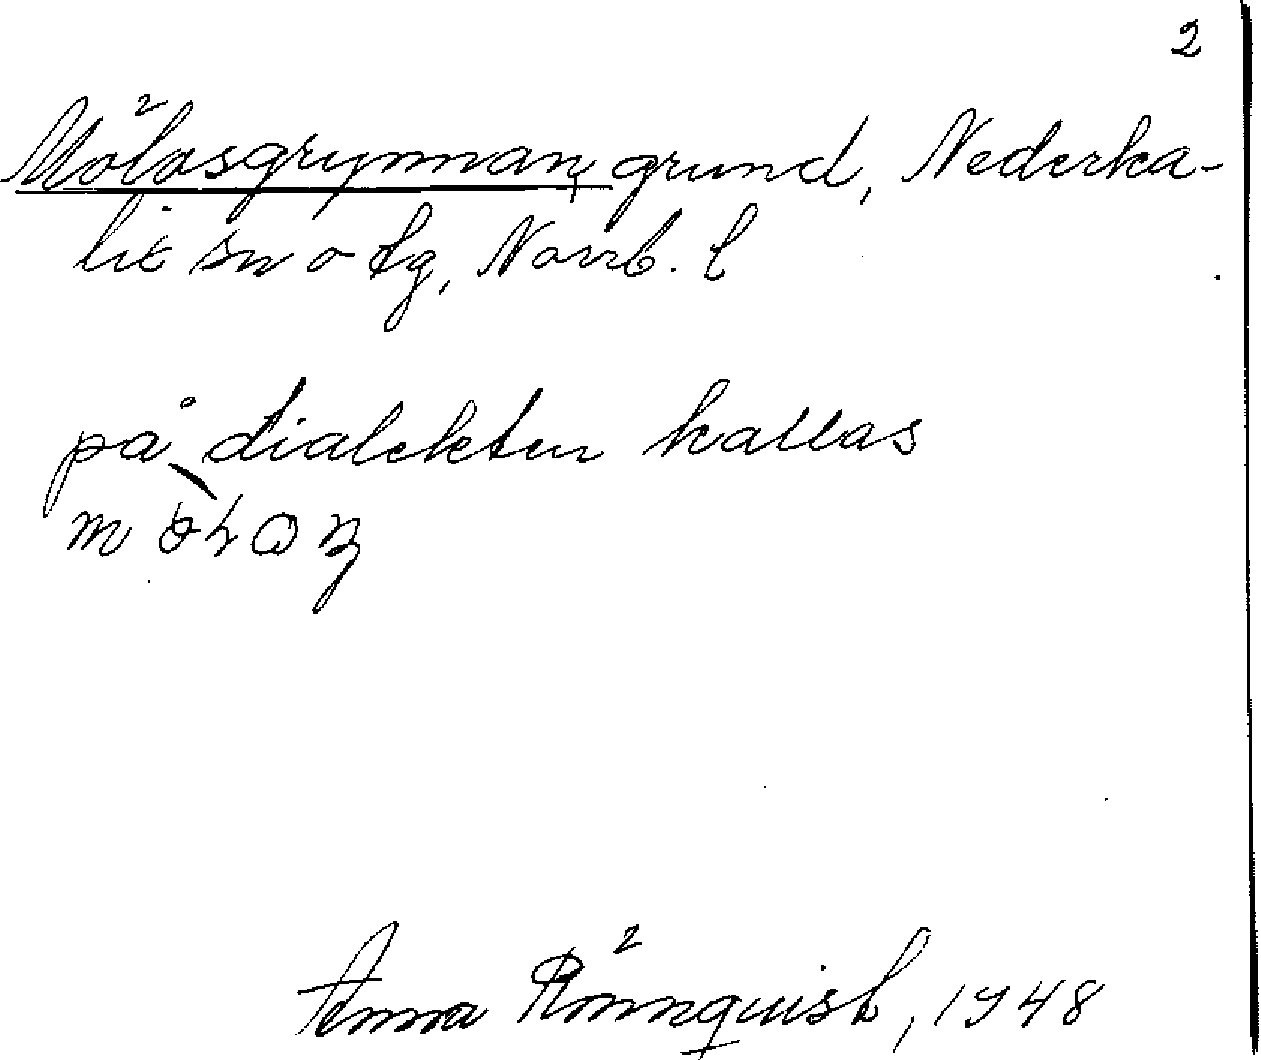 2
Mölasgrynnan, grund, Nederka-
lix sn o tg, Norrb. l
på dialekten kallas
Anna Rönnquist, 1948